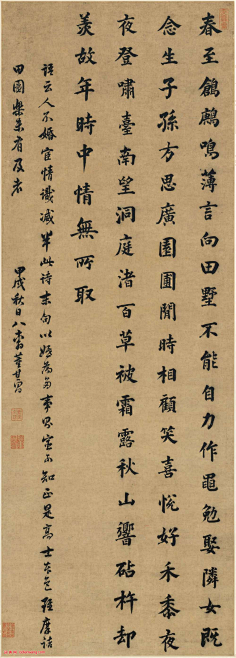 春至鶬鶊鳴薄言向田墅不能自力作黽勉娶隣女既
念生子孫方思廣園圃閒時相顧笑喜悅好禾黍夜
夜登嘯臺南望洞庭渚百草被霜露秋山響砧杵却
羨故年時中情無所取
語云人不婚宦情識減半此詩末句以為事宦不知正是高士本色摩詰
田園樂未有及者
甲戌秋日八十翁董其昌